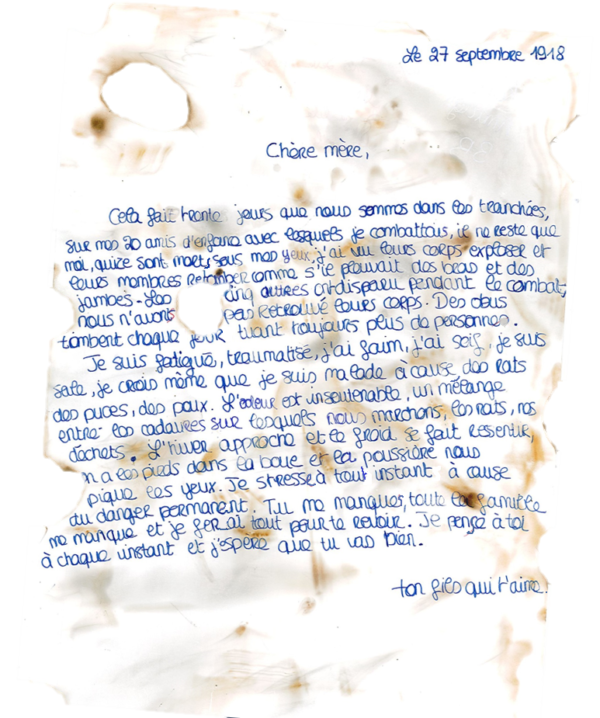 Le 27 septembre 1918
Chère mère,
Cela fait trente jours que nous sommes dans les tranchées,
sur mes 20 amis d'enfance avec lesquels je combattais, il ne reste que
moi, quize sont morts sous mes yeux, j'ai vu leurs corps exploser et
leurs membres Retomber comme s'il pleuvait des bras et des
jambes. Les cinq autres ont disparu pendant le combat,
nous n'avons pas Retrouvé leurs corps. Des obus
tombent chaque jour tuant toujours plus de personnes.
Je suis fatigué, traumatisé, j'ai faim, j'ai soif, je suis
sale, je crois même que je suis malade à cause des rats
des puces, des poux. L'odeur est insoutenable, un mélange
entre les cadavres sur lesquels nous marchons, les rats, nos
déchets. L'hiver approche et le froid se fait ressentir,
on a les pieds dans la boue et la poussière nous
pique les yeux. Je stresse à tout instant à cause
du danger permanent. Tu me manques, toute la famille
me manque et je ferai tout pour te revoir. Je pense à toi
à chaque instant et j'espère que tu vas bien.
ton fils qui t'aime.